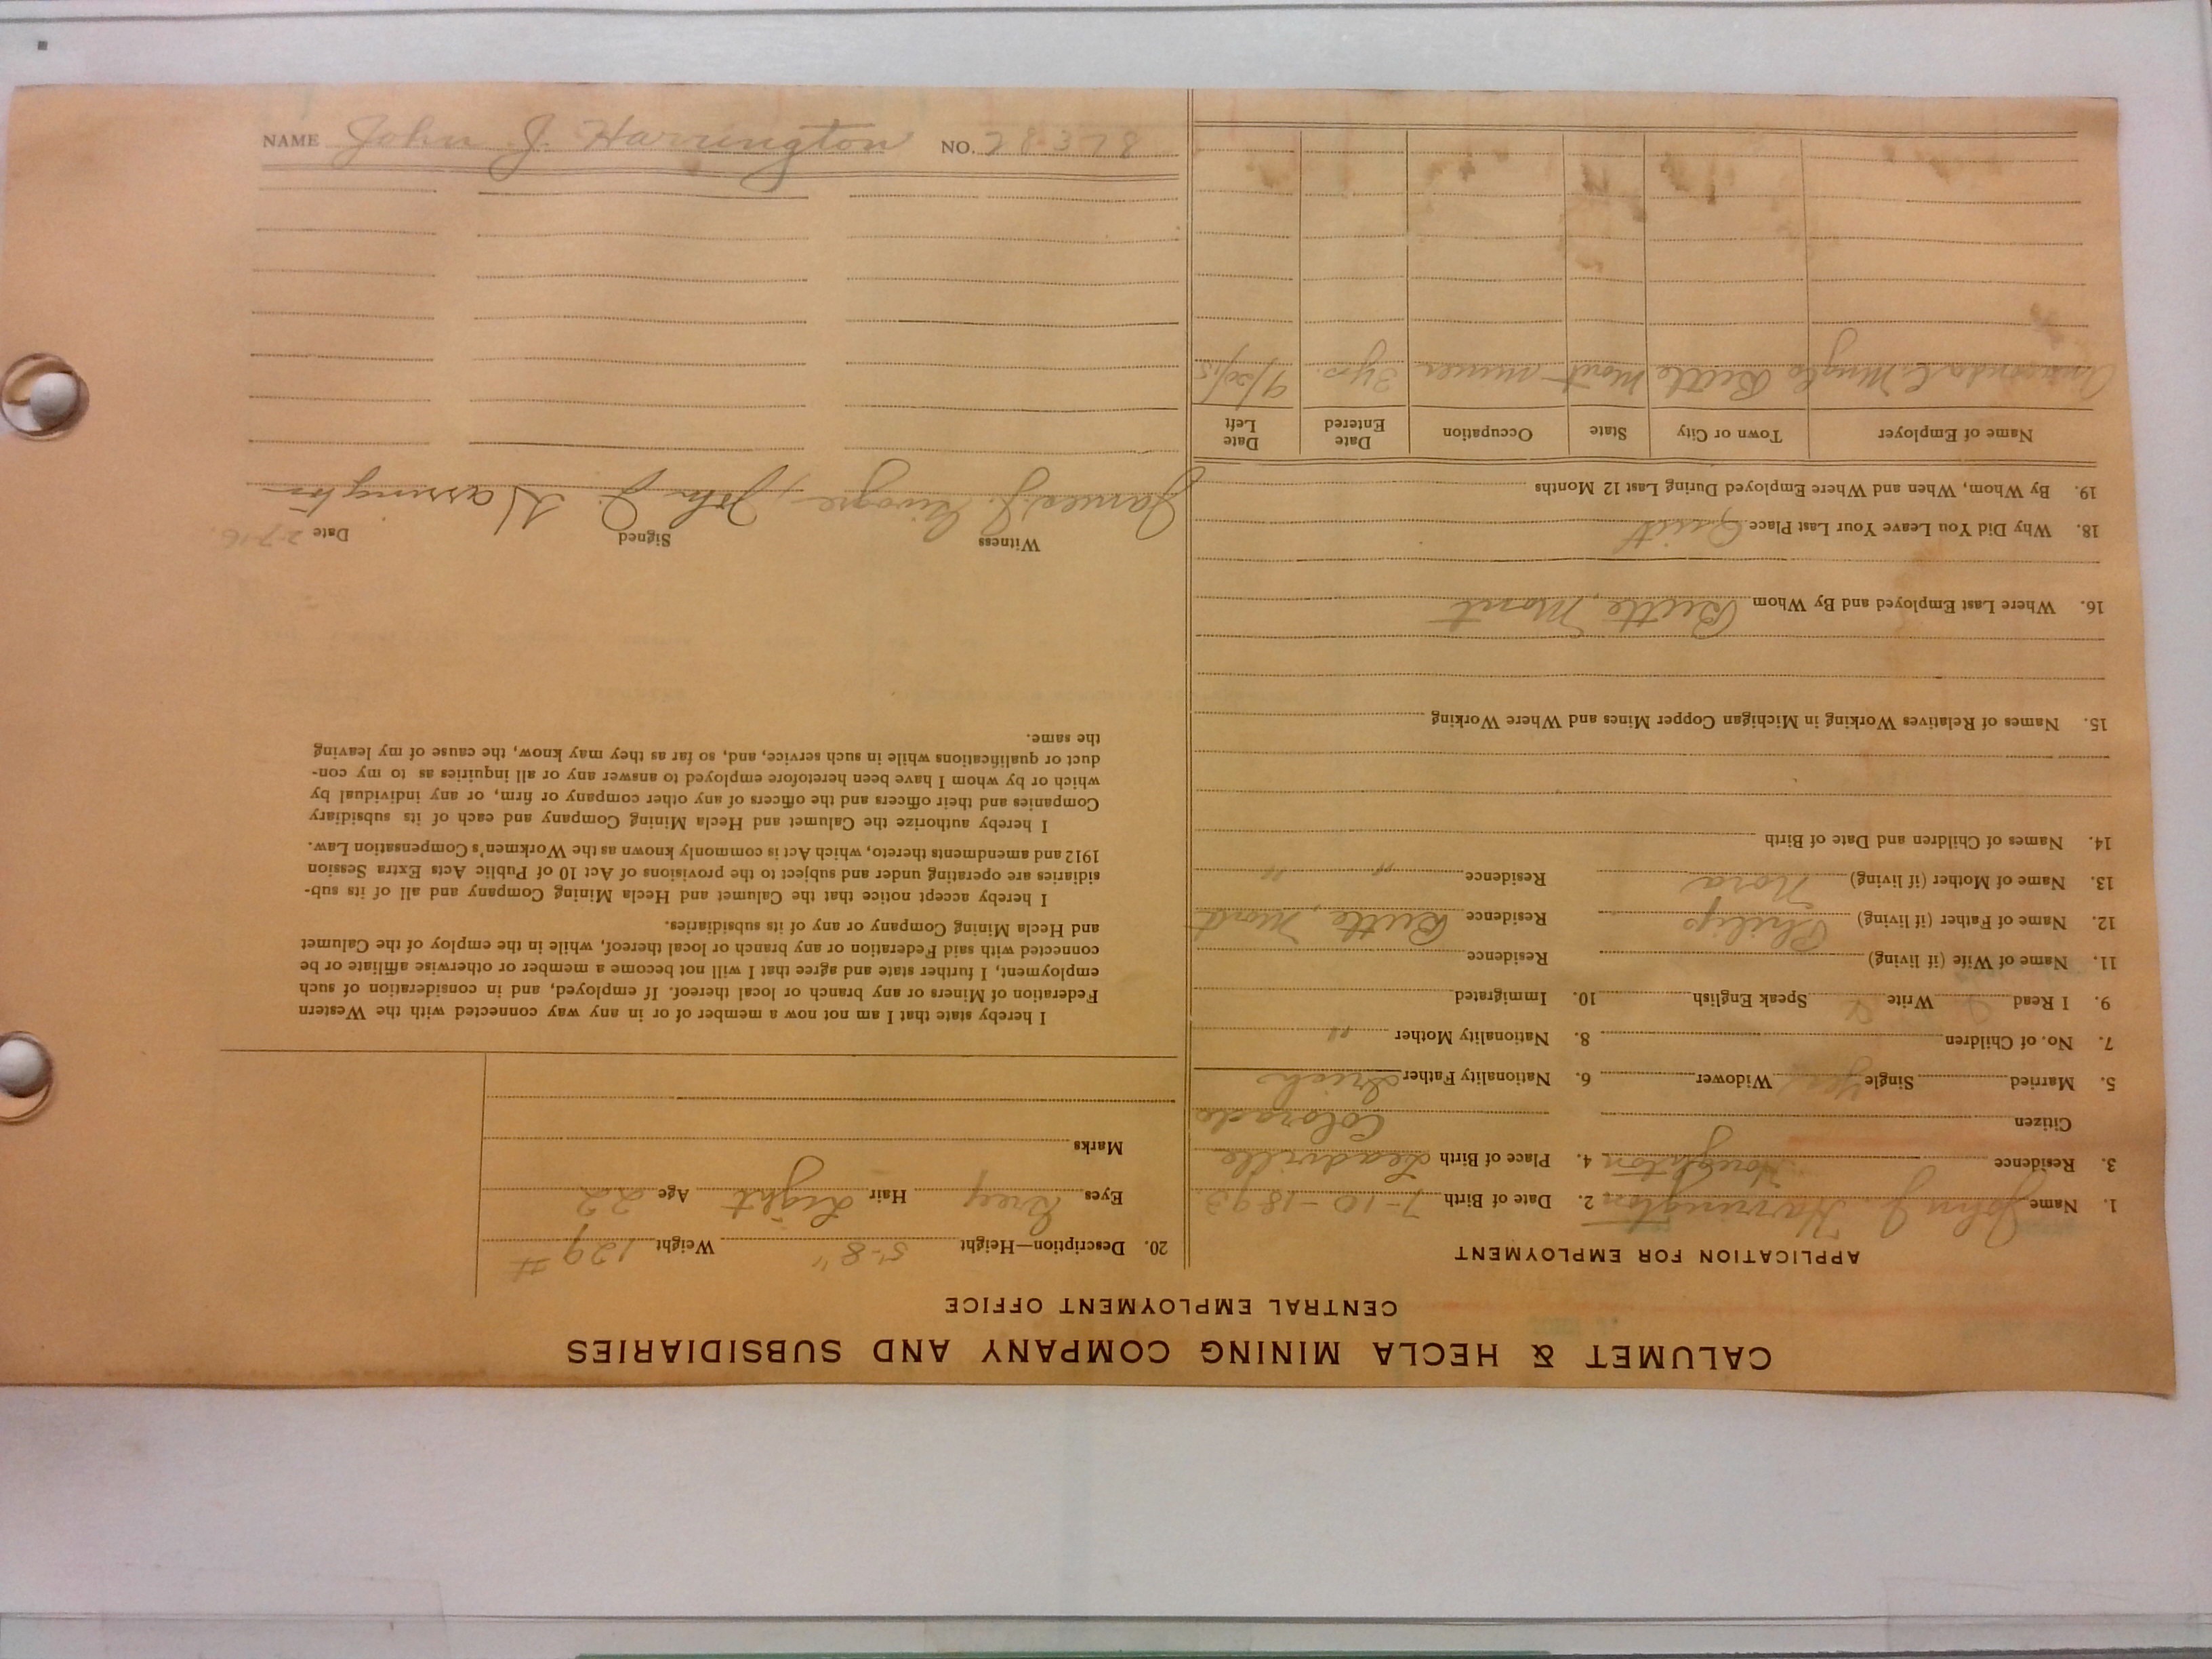 CALUMET & HECLA MINING COMPANY AND SUBSIDIARIES
CENTRAL EMPLOYMENT OFFICE
APPLICATION FOR EMPLOYMENT
1. Name John J. Harrington 2. Date of Birth 7-10-1893
3. Residence Houghton 4. Place of Birth Leadville
Citizen Colorado
5. Married Single Yes Widower 6. Nationality Father Irish
7. No. of Children 8. Nationality Mother "
9. I Read Write Speak English 10. Immigrated
11. Name of Wife (if living) Residence
12. Name of Father (if living) Philip Residence Butte, Mont
13. Name of Mother (if living) Nora Residence " "
14. Names of Children and Date of Birth
15. Names of Relatives Working in Michigan Copper Mines and Where Working
16. Where Last Employed and By Whom Butte, Mont
18. Why Did You Leave Your Last Place Quit
19. By Whom, When and Where Employed During Last 12 Months
Name of Employer Town or City State Occupation Date Entered Date Left
Anaconda C. Mng Co Butte Mont miner 3 yrs. 9/20/15
20. Description—Height 5'-8" Weight 129 #
Eyes Grey Hair Light Age 22
Marks
I hereby state that I am not now a member of or in any way connected with the Western
Federation of Miners or any branch or local thereof. If employed, and in consideration of such
employment, I further state and agree that I will not become a member or otherwise affiliate or be
connected with said Federation or any branch or local thereof, while in the employ of the Calumet
and Hecla Mining Company or any of its subsidiaries.
I hereby accept notice that the Calumet and Hecla Mining Company and all of its sub-
sidiaries are operating under and subject to the provisions of Act 10 of Public Acts Extra Session
1912 and amendments thereto, which Act is commonly known as the Workmen's Compensation Law.
I hereby authorize the Calumet and Hecla Mining Company and each of its subsidiary
Companies and their officers and the officers of any other company or firm, or any individual by
which or by whom I have been heretofore employed to answer any or all inquiries as to my con-
duct or qualifications while in such service, and, so far as they may know, the cause of my leaving
the same.
Witness Signed Date 2-7-16.
James J. John J. Harrington
NAME John J. Harrington NO. 28378